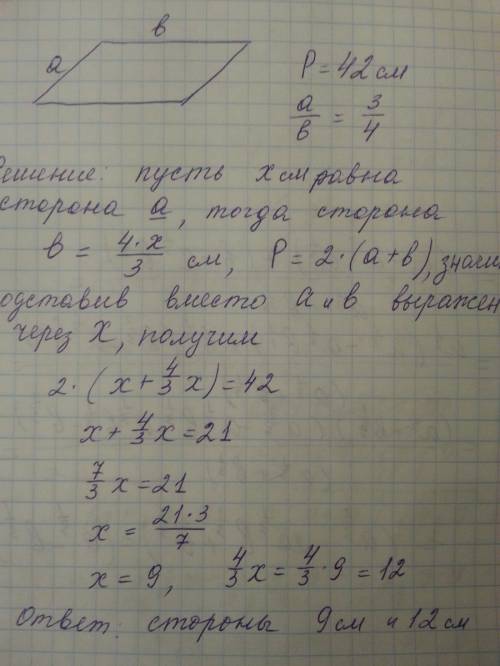 в
a
P = 42 см
a/в = 3/4
Решение: пусть x см равна
сторона a, тогда сторона
в = 4·x/3 см, P = 2·(a+в), значит
подставив вместо a и в выражен
через x, получим
2·(x + 4/3 x) = 42
x + 4/3 x = 21
7/3 x = 21
x = 21·3/7
x = 9, 4/3 x = 4/3 · 9 = 12
Ответ: стороны 9 см и 12 см